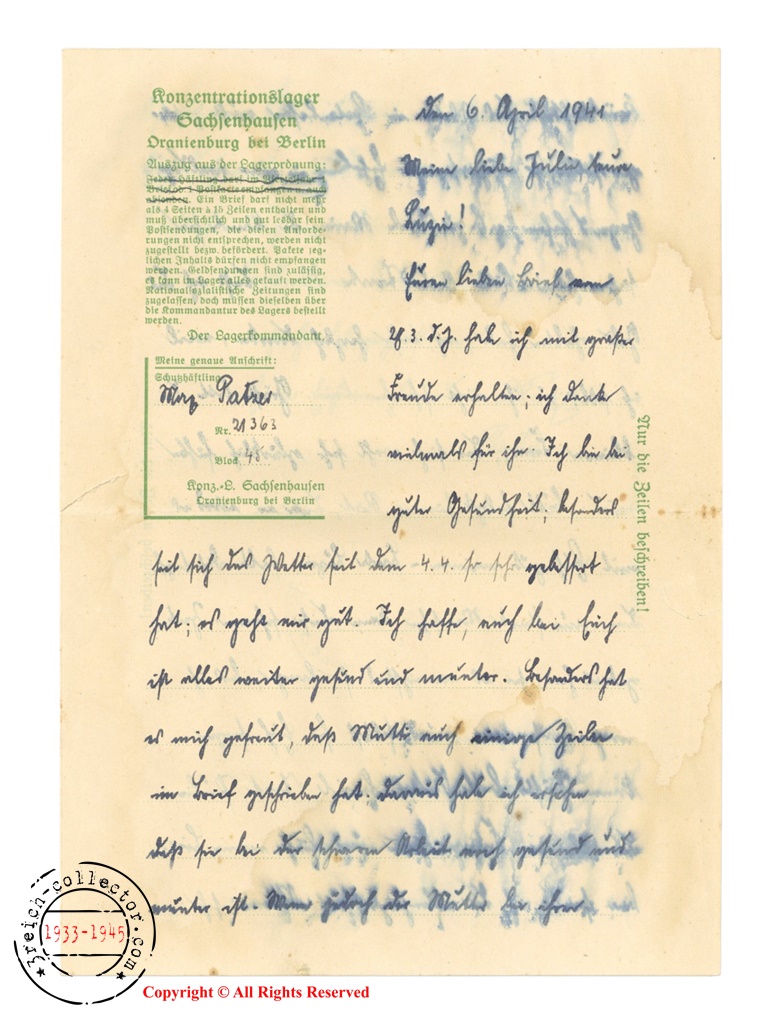 Konzentrationslager
Sachsenhausen
Oranienburg bei Berlin
Auszug aus der Lagerordnung:
Jeder Häftling darf im
Brief od. 1 Postkarte empfangen u. auch
absenden. Ein Brief darf nicht mehr
als 4 Seiten à 15 Zeilen enthalten und
muß übersichtlich und gut lesbar sein.
Postsendungen, die diesen Anforde-
rungen nicht entsprechen, werden nicht
zugestellt bezw. befördert. Pakete jeg-
lichen Inhalts dürfen nicht empfangen
werden. Geldsendungen sind zulässig,
es kann im Lager alles gekauft werden.
Nationalsozialistische Zeitungen sind
zugelassen, doch müssen dieselben über
die Kommandantur des Lagers bestellt
werden.
Der Lagerkommandant.
Meine genaue Anschrift:
Schutzhäftling
Max Patzer
Nr. 21363
Block 45
Konz.-L. Sachsenhausen
Oranienburg bei Berlin
Nur die Zeilen beschreiben!
Den 6. April 1941
Meine liebe Julie, teure
Luzie!
Euren lieben Brief vom
28.3. d.J. habe ich mit großer
Freude erhalten; ich danke
vielmals für ihn. Ich bin bei
guter Gesundheit, besonders
seit sich das Wetter seit dem 4.4. so sehr gebessert
hat; es geht mir gut. Ich hoffe, auch bei Euch
ist alles weiter gesund und munter. Besonders hat
es mich gefreut, daß Mutti auch einige Zeilen
im Brief geschrieben hat. Daraus habe ich ersehen
daß sie bei der schweren Arbeit noch gesund und
munter ist. Wenn jedoch der Mutter bei ihrer
3reich-collector.com
1933-1945
Copyright © All Rights Reserved